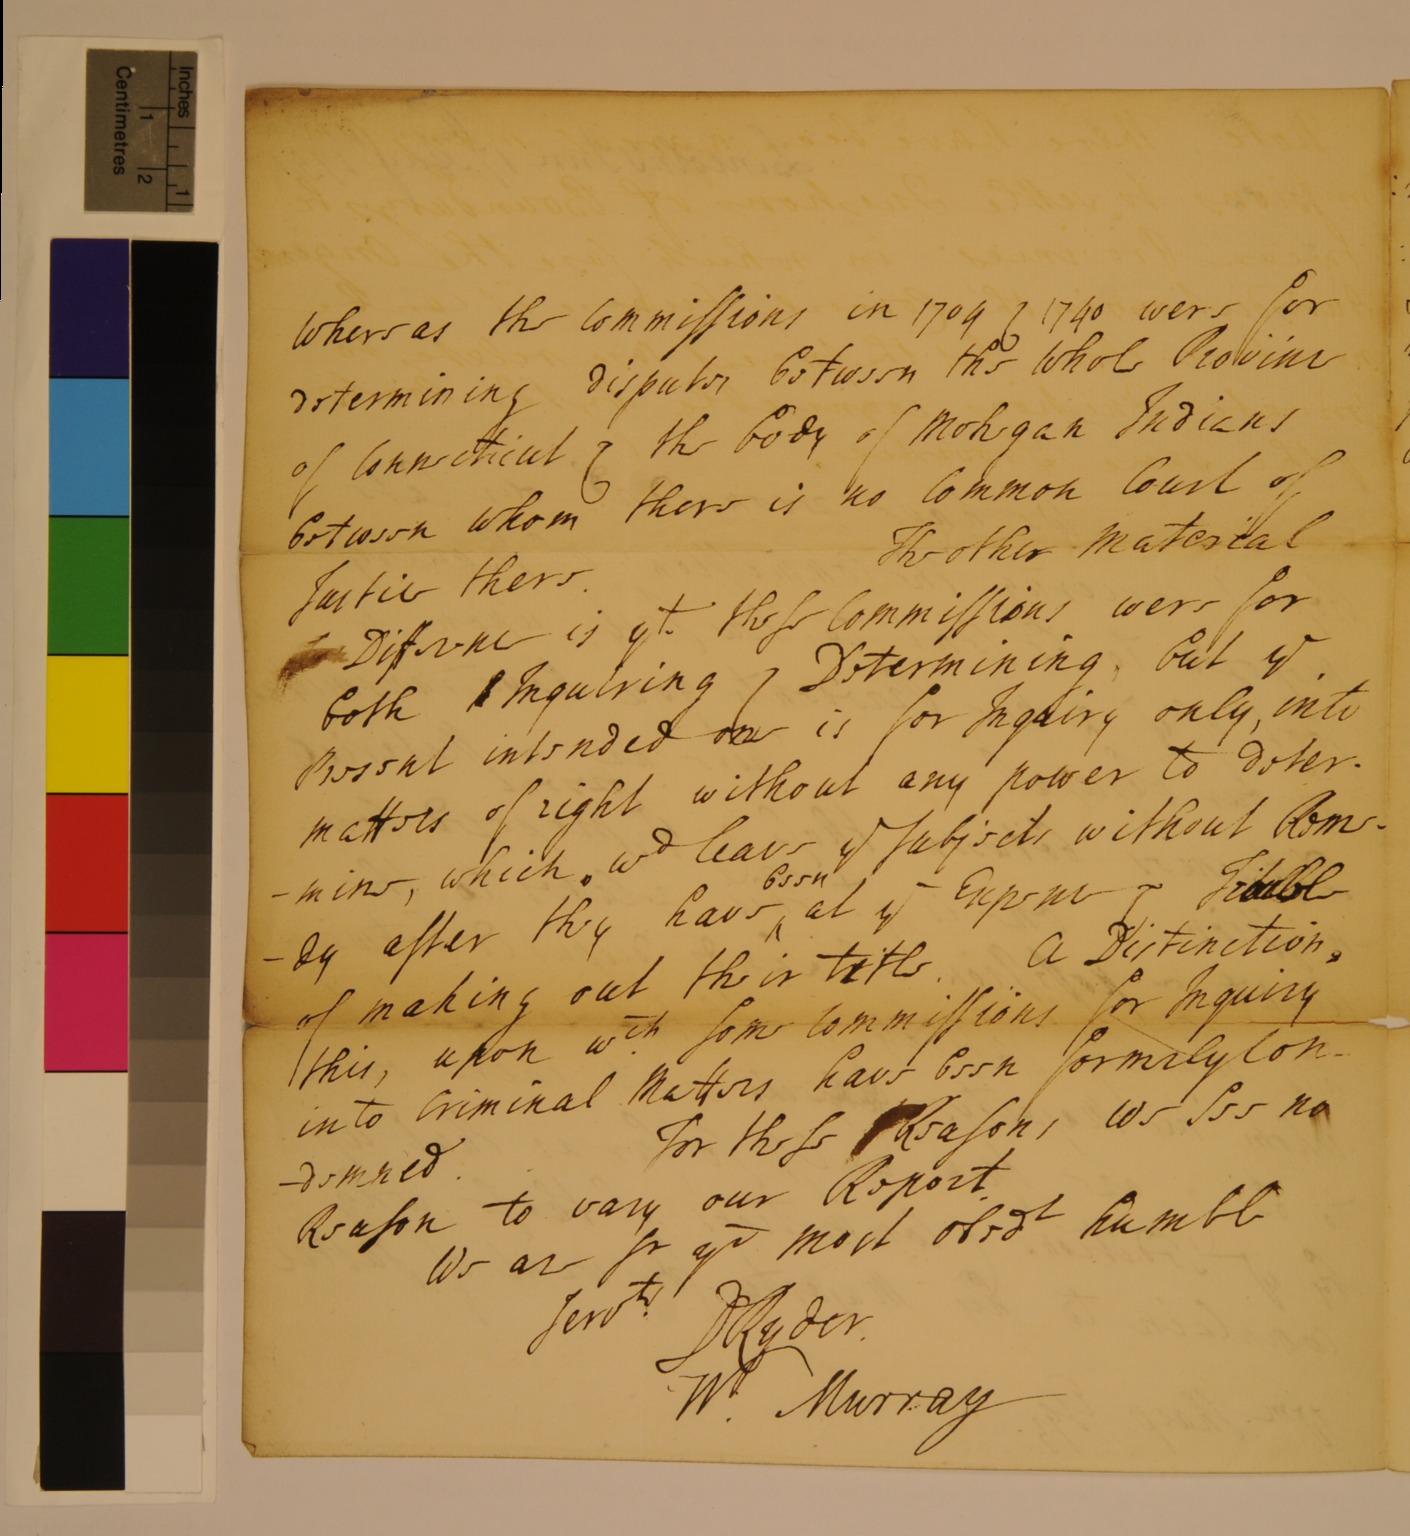 Inches
Centimetres
1
2
1
Whereas the Commissions in 1704 & 1740 were for
determining disputes between the whole Province
of Connecticut & the body of Mohegan Indians
between whom there is no Common Court of
Justice there. The other material
Difference is yt. these Commissions were for
both Inquiring & Determining, but ye
Present intended one is for Inquiry only, into
matters of right without any power to deter-
-mine, which wd leave ye Subjects without Reme-
-dy after they have been at ye Expence & Trouble
of making out their title. A Distinction,
this, upon wch some Commissions for Inquiry
into Criminal Matters have been formerly Con-
-demned. For these Reasons we see no
Reason to vary our Report.
We are Sr yr most obedt humble
Servts.
D Ryder.
W. Murray